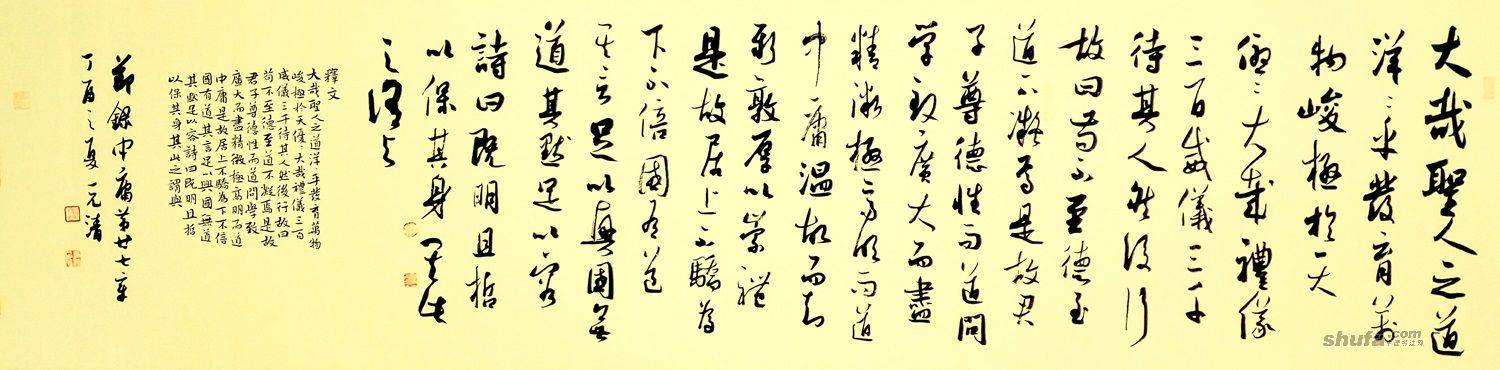 大哉聖人之道
洋〻乎發育萬
物峻極於天
優〻大哉禮儀
三百威儀三千
待其人然後行
故曰苟不至德至
道不凝焉是故君
子尊德性而道問
學致廣大而盡
精微極高明而道
中庸溫故而知
新敦厚以崇禮
是故居上不驕為
下不倍國有道
其言足以興國無
道其默足以容
詩曰既明且哲
以保其身其此
之謂與
釋文
大哉聖人之道洋〻乎發育萬物
峻極於天優〻大哉禮儀三百
威儀三千待其人然後行故曰
苟不至德至道不凝焉是故
君子尊德性而道問學致
廣大而盡精微極高明而道
中庸是故居上不驕為下不倍
國有道其言足以興國無道
其默足以容詩曰既明且哲
以保其身其此之謂與
節錄中庸第廿七章
丁酉之夏元清
shufa.com